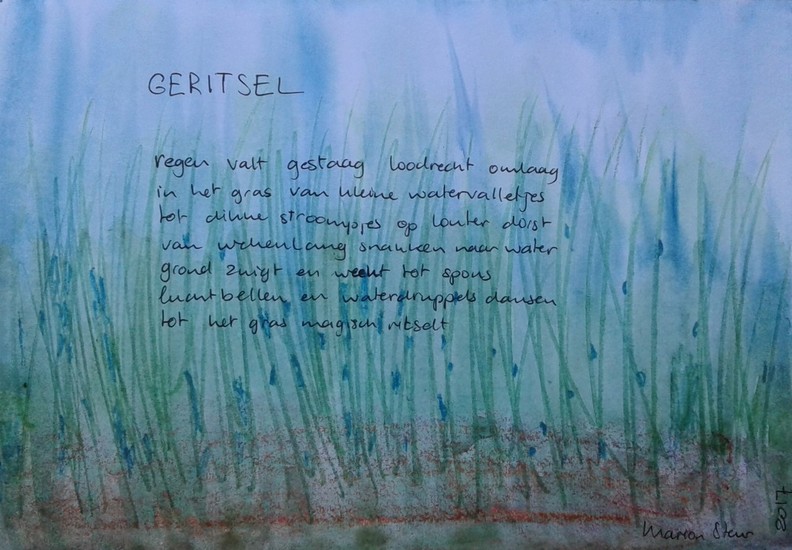 GERITSEL
regen valt gestaag loodrecht omlaag
in het gras van kleine watervalletjes
tot dunne stroompjes op louter dorst
van wekenlang snakken naar water
grond zuigt en weekt tot spons
luchtbellen en waterdruppels dansen
tot het gras magisch ritselt
Marion Steur
2017